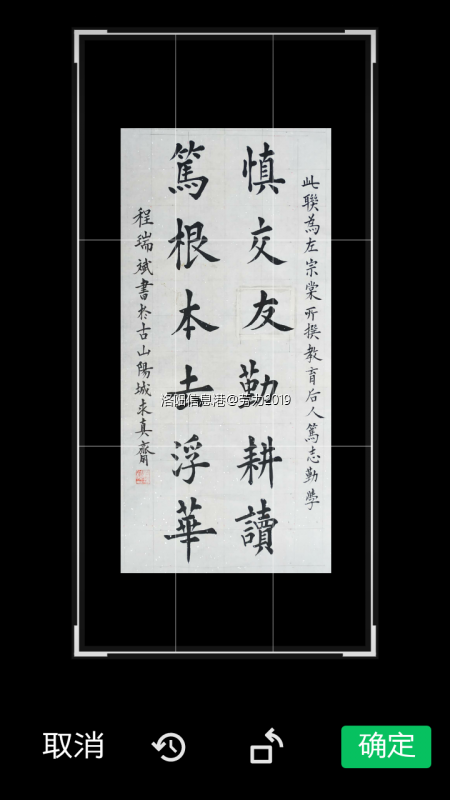 此聯為左宗棠所撰教育后人篤志勤學
慎交友勤耕讀
篤根本去浮華
程瑞斌書於古山陽城求真齋
洛阳信息港@劳力2019
取消
确定